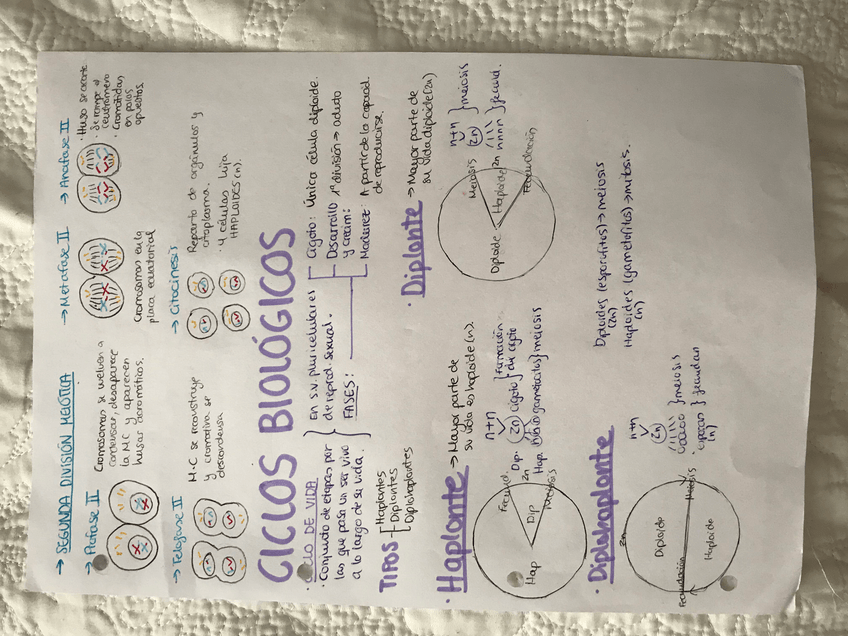 → SEGUNDA DIVISIÓN MEIÓTICA
→ Profase II
Cromosomas se vuelven a
condensar, desaparece
la M.C y aparecen
husos acromáticos.
→ Metafase II
Cromosomas en la
placa ecuatorial
→ Anafase II
· Huso se acorta
· Se rompe el
centrómero
· Cromátidas
en polos
opuestos
→ Telofase II
M.C se reconstruye
y cromatina se
descondensa
→ Citocinesis
Reparto de orgánulos y
citoplasma.
· 4 células hija
HAPLOIDES (n).
CICLOS BIOLÓGICOS
· CICLO DE VIDA
· Conjunto de etapas por
las que pasa un ser vivo
a lo largo de su vida.
En s.v. pluricelulares
de reprod. sexual.
FASES:
Cigoto: Única célula diploide.
Desarrollo
y crecim:
1ª división → adulto
Madurez: A partir de la capacid.
de reproducirse.
TIPOS
Haplontes
Diplontes
Diplohaplontes
· Haplonte → Mayor parte de
su vida es haploide (n).
Hap
Dip
Fecund.
2n
Meiosis
n+n
Dip. (2n) Cigoto } formación
del cigoto
Hap. } meiosis
· Diplonte → Mayor parte de
su vida diploide (2n)
Diploide
Meiosis
Haploide
2n
Fecundación
n+n
(2n) } meiosis
n n n n } fecund.
· Diplohaplonte
2n
Diploide
Fecundación
Meiosis
Haploide
n+n
(2n)
} meiosis
esporas } fecundan
(n)
Diploides (esporofitos) → meiosis
(2n)
Haploides (gametofitos) → mitosis.
(n)